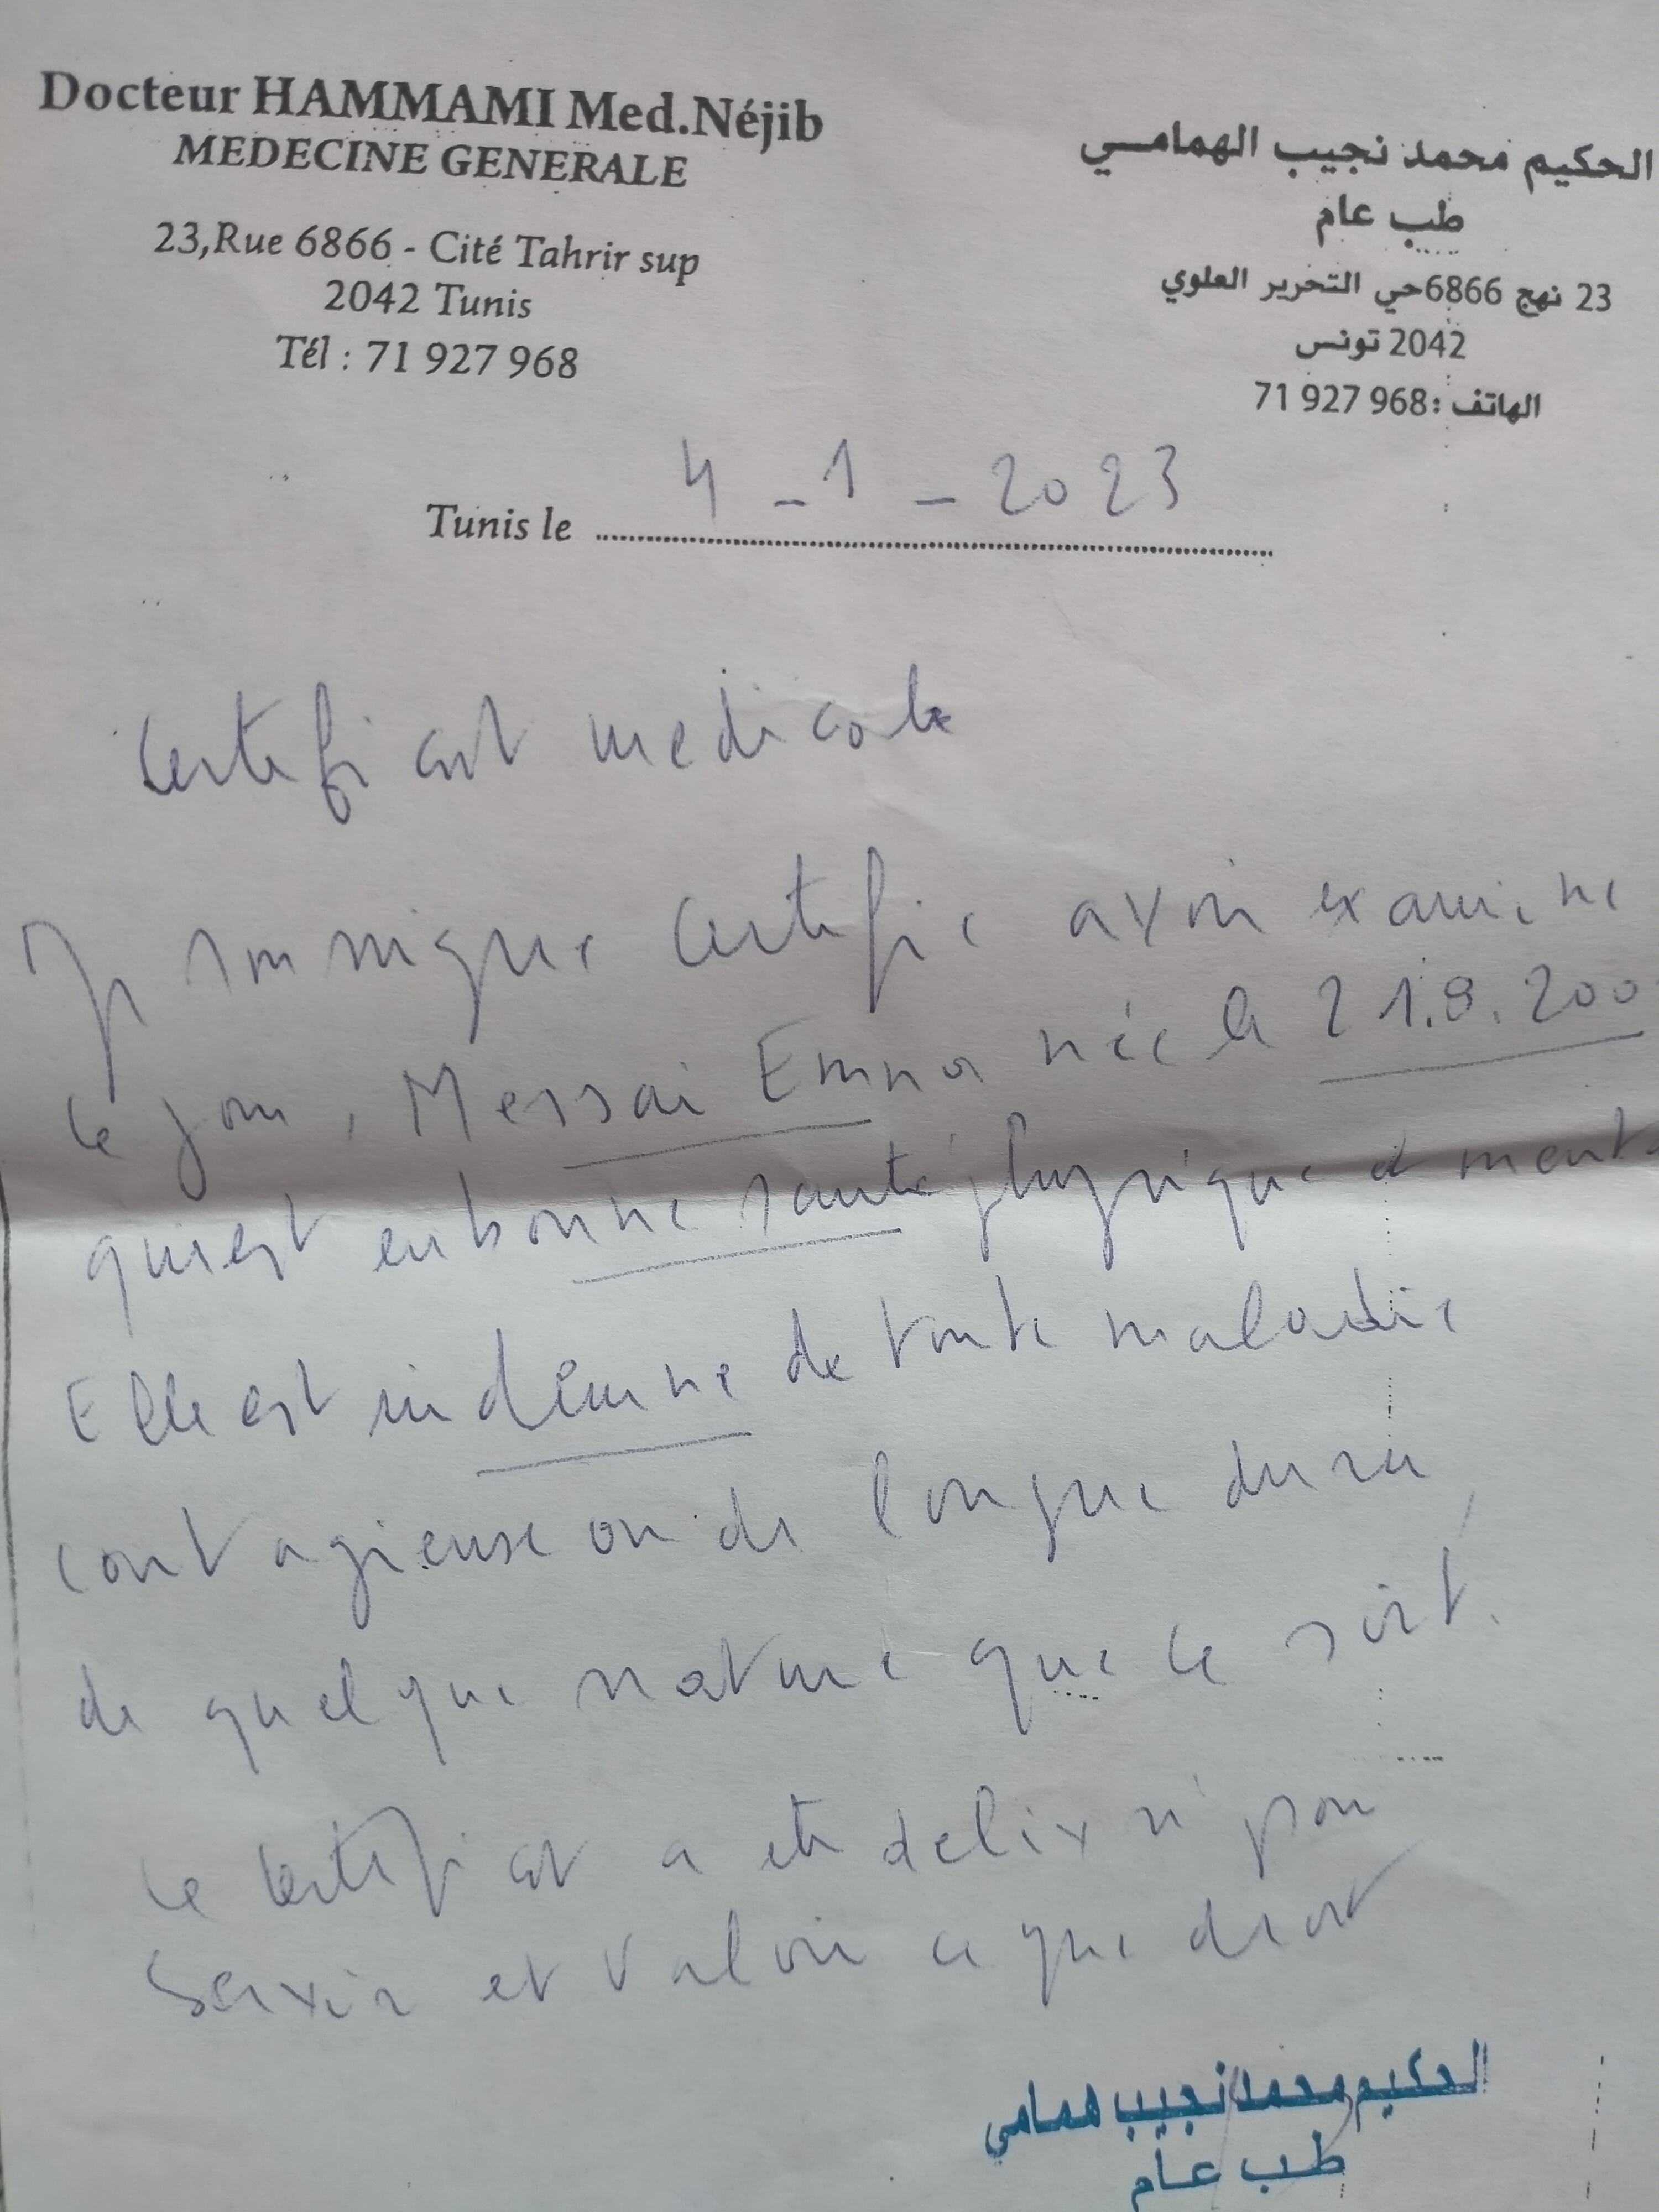 Docteur HAMMAMI Med.Néjib
MEDECINE GENERALE
23,Rue 6866 - Cité Tahrir sup
2042 Tunis
Tél : 71 927 968
الحكيم محمد نجيب الهمامي
طب عام
23 نهج 6866حي التحرير العلوي
2042 تونس
الهاتف :71 927 968
Tunis le 4-1-2023
Certificat medicale
Je soussigne certifie avoir examine
ce jour, Messai Emna née le 21.8.200
qui est en bonne santé physique et menta
Elle est indemne de toute maladie
contagieuse ou de longue duree
de quelque nature que ce soit.
Ce certificat a ete delivré pour
servir et valoir ce que droit
الحكيم محمد نجيب همامي
طب عام